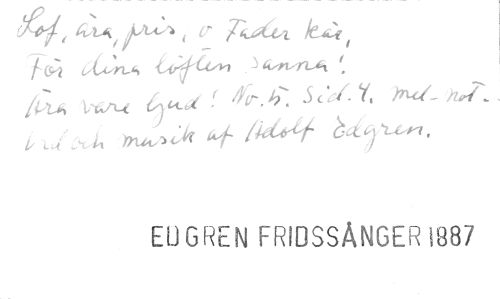 Lof, ära, pris, o Fader kär,
För dina löften sanna!
Ära vare Gud! No. 5. Sid. 4. mel-not-
Ord och musik af Adolf Edgren.
EDGREN FRIDSSÅNGER 1887